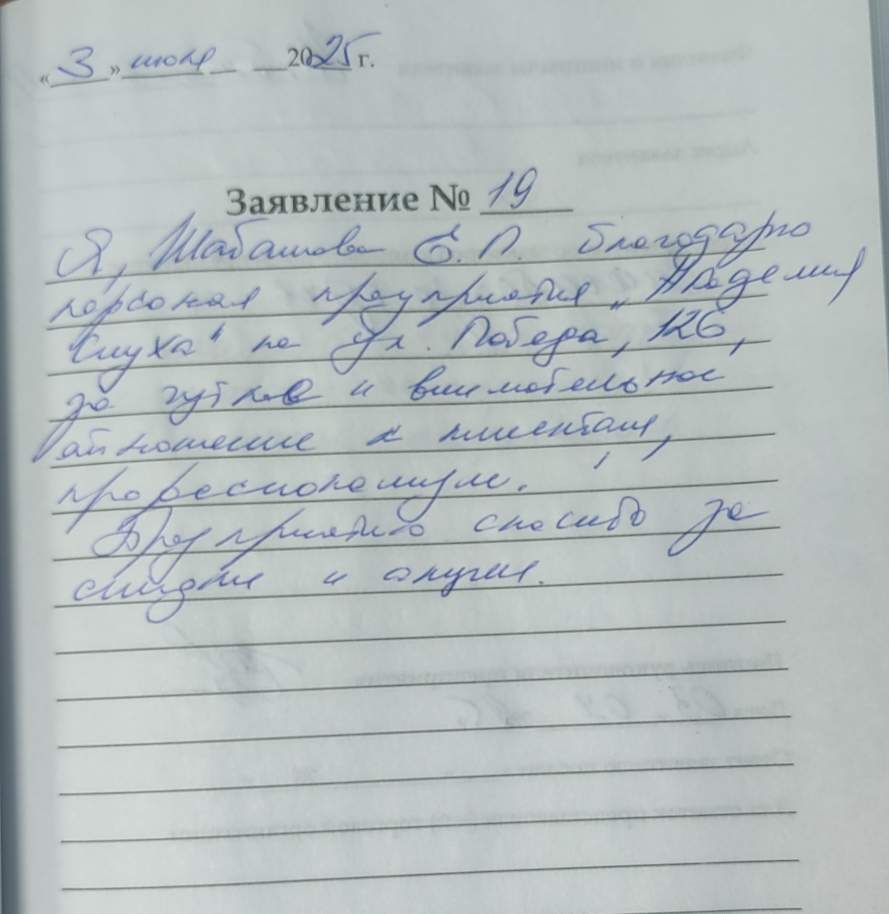 «3» июля 2025 г.
Заявление № 19
Я, Шабашова Е.П. благодарю
персонал предприятия „Академия
Слуха" на ул. Победа, 126,
за чуткое и внимательное
отношение к клиентам,
профессионализм.
Предприятию спасибо за
скидки и акции.